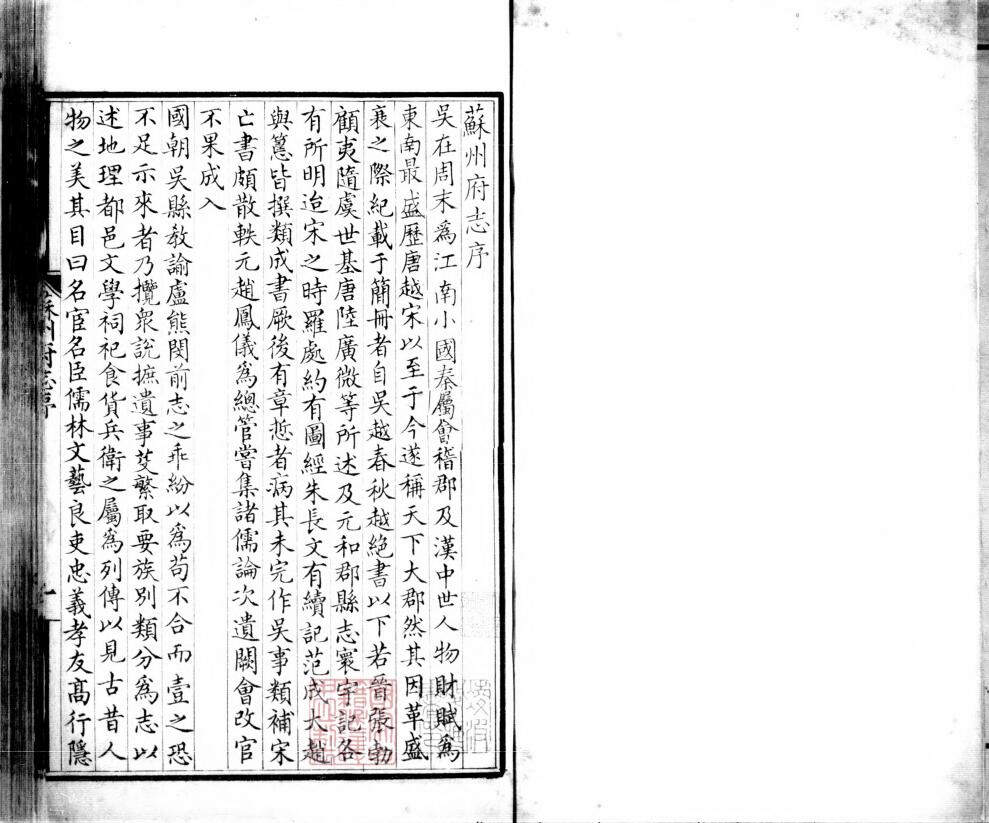 蘇州府志序
吳在周末爲江南小國秦屬會稽郡及漢中世人物財賦爲
東南最盛歷唐越宋以至于今遂稱天下大郡然其因革盛
衰之際紀載于簡冊者自吳越春秋越絕書以下若晉張勃
顧夷隨虞世基唐陸廣微等所述及元和郡縣志寰宇記各
有所明迨宋之時羅處約有圖經朱長文有續記范成大趙
與𥲅皆撰類成書厥後有章悊者病其未完作吳事類補宋
亡書頗散軼元趙鳳儀爲總管嘗集諸儒論次遺闕會改官
不果成入
國朝吳縣敎諭盧熊閔前志之乖紛以爲苟不合而壹之恐
不足示來者乃攬衆說摭遺事芟繁取要族別類分爲志以
述地理都邑文學祠祀食貨兵衛之屬爲列傳以見古昔人
物之美其目曰名宦名臣儒林文藝良吏忠義孝友髙行隱
蘇州府志序
一